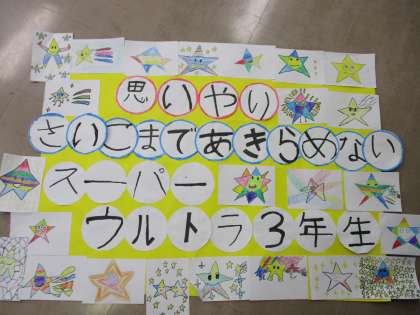 思いやり
さいごまであきらめない
スーパー
ウルトラ3年生